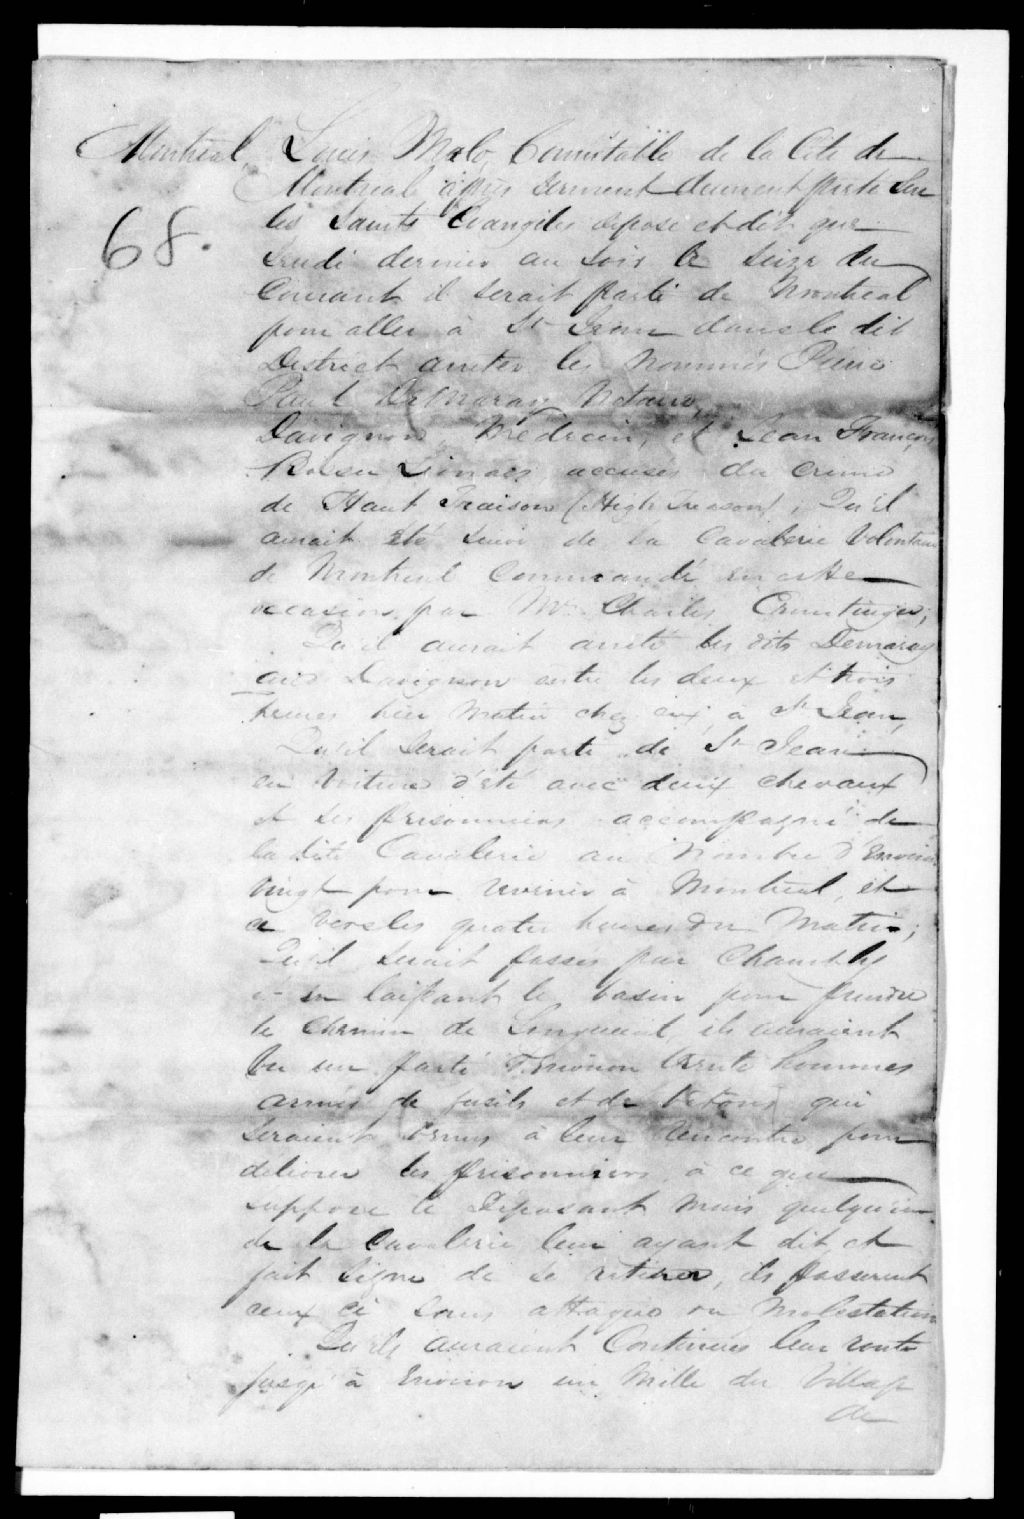 Montreal, Louis Malo, Connétable de la Cité de
Montreal après serment dument preté sur
68.
les Saints Evangiles depose et dit que
Jeudi dernier au soir le Seize du
Courant il serait parti de Montreal
pour aller à St Jean dans le dit
District arreter les nommés Pierre
Paul Demaray Notaire,
Davignon, Médecin, et Jean François
Bossu Lionais, accusés du crime
de Haut Traison (High Treason), Qu'il
aurait été suivi de la Cavalerie Volontaire
de Montreal Commandé en cette
occasion par Mr Charles Ermatinger;
Qu'il aurait arreté les dits Demaray
and Davignon entre les deux et trois
heures hier matin chez eux, à St Jean,
Qu'il serait parti de St Jean
en voiture d'été avec deux chevaux
et ses prisonniers accompagné de
la dite Cavalerie au Nombre d'Environ
vingt pour revenir à Montreal, et
ce vers les quatre heures du Matin;
Qu'il serait passés par Chambly
en laissant le basin pour prendre
le Chemin de Longueuil, ils auraient
vu un parti d'Environ trente hommes
armés de fusils et de batons qui
seraient venus à leur rencontre pour
delivrer les prisonniers, à ce que
suppose le Deposant mais quelqu'un
de la Cavalerie leur ayant dit et
fait signe de se retirer, ils passerent
ceux ci sans attaque ou Molestation
Qu'ils auraient Continués leur route
jusqu'à Environ un Mille du Village
de